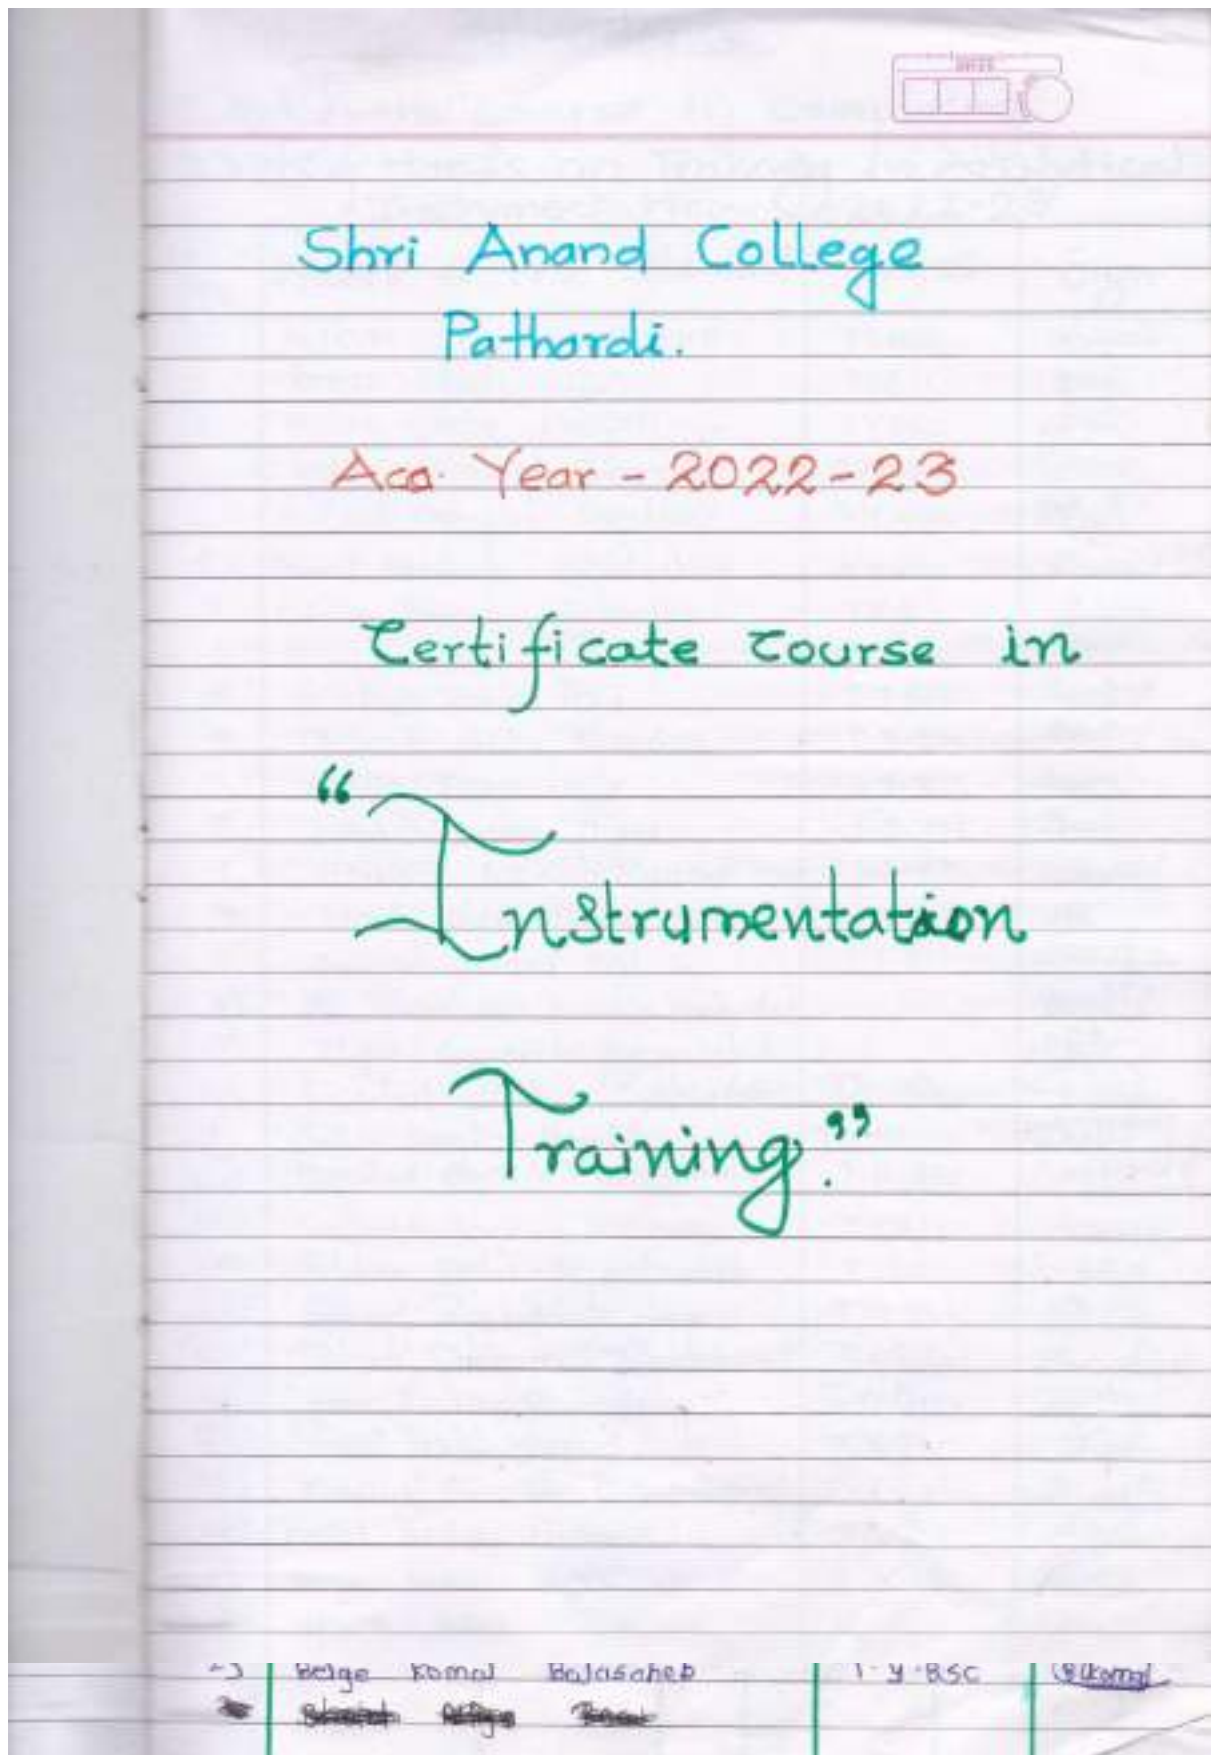 Shri Anand College
Pathardi.
Aca. Year - 2022-23
Certificate course in
"Instrumentation
Training."
Belge Komal Balasaheb T-Y-BSC BKomal